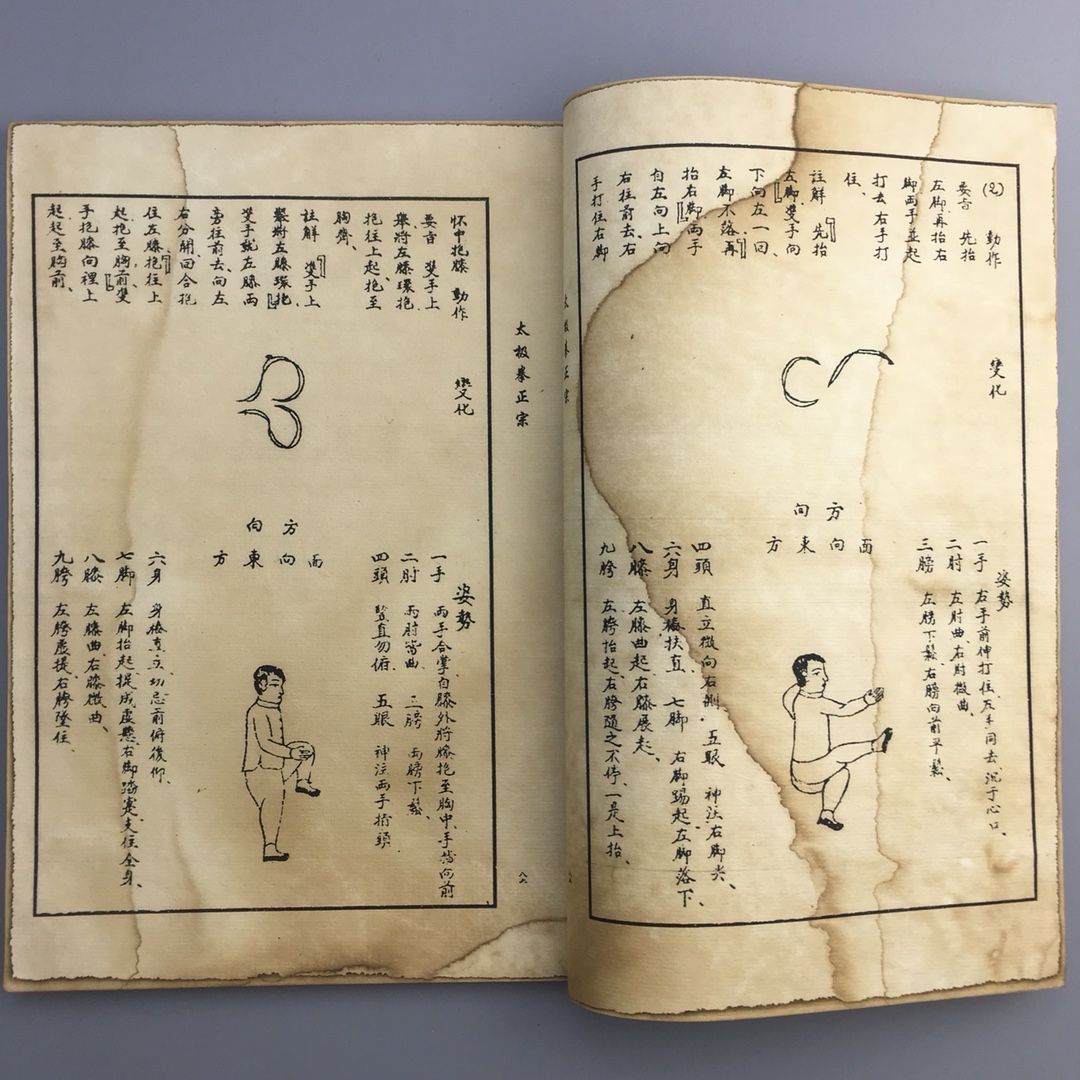 (2) 動作
要旨 先抬
左脚再抬右
脚兩手並起
打去右手打
住、
註解 先抬
左脚雙手向
下向左一回、
左脚不落再
抬右脚兩手
自左向上向
右往前去、右
手打住右脚
變化
方向
面向東方
姿勢
一手 右手前伸打住、左手同去沉于心口、
二肘 左肘曲、右肘微曲、
三膀 左膀下鬆、右膀向前平鬆、
四頭 直立微向右側、五眼 神注右脚尖、
六身 身椿扶直 七脚 右脚踢起、左脚落下、
八膝 左膝曲起、右膝展起、
九胯 左胯抬起、右胯隨之不停、一是上抬、
太极拳正宗
太极拳正宗
八六
怀中抱膝 動作
要旨 雙手上
舉將左膝環抱、
抱往上起、抱至
胸齊、
註解 雙手上
舉將左膝環抱、
雙手就左膝兩
旁往前去、向左
右分開、回合抱
住左膝抱往上
起、抱至胸前、雙
手抱膝向裡上
起起至胸前、
變化
方向
面向東方
姿勢
一手 兩手合掌、自膝外將膝抱至胸中、手指向前
二肘 兩肘皆曲、三膀 兩膀下鬆、
四頭 豎直勿俯、五眼 神注兩手指頭
六身 身椿直立、切忌前俯後仰、
七脚 左脚抬起提成虛懸右脚踏寔支住全身、
八膝 左膝曲、右膝微曲、
九胯 左胯虛提、右胯墜住、